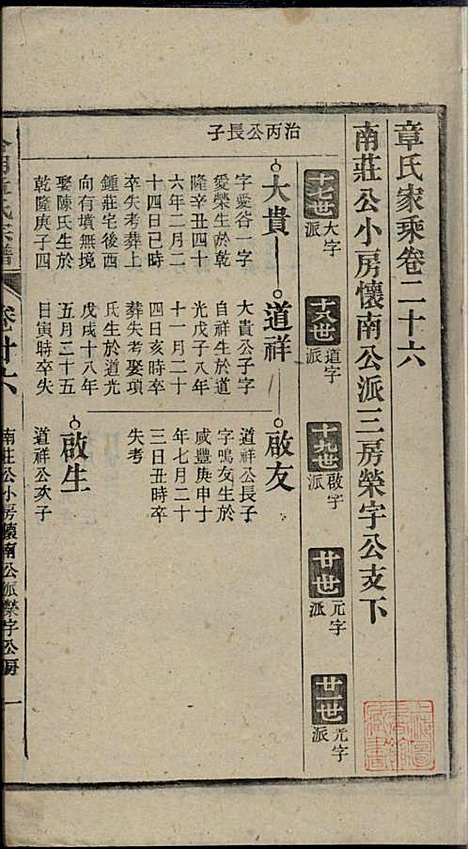 章氏家乘卷二十六
南莊公小房懷南公派三房榮字公支下
十七世 大字派
十八世 道字派
十九世 啟字派
廿世 元字派
廿一世 光字派
治丙公長子
大貴
字菱谷一字
愛榮生於乾
隆辛丑四十
六年二月二
十四日己時
卒失考葬上
鍾莊宅後西
向有墳無境
娶陳氏生於
乾隆庚子四
道祥
大貴公子字
自祥生於道
光戊子八年
十一月二十
四日亥時卒
葬失考娶項
氏生於道光
戊戌十八年
五月二十五
日寅時卒失
啟友
道祥公長子
字鳴友生於
咸豐庚申十
年七月二十
三日丑時卒
失考
啟生
道祥公次子
章氏宗譜
卷廿六
南莊公小房懷南公派榮字公房
一